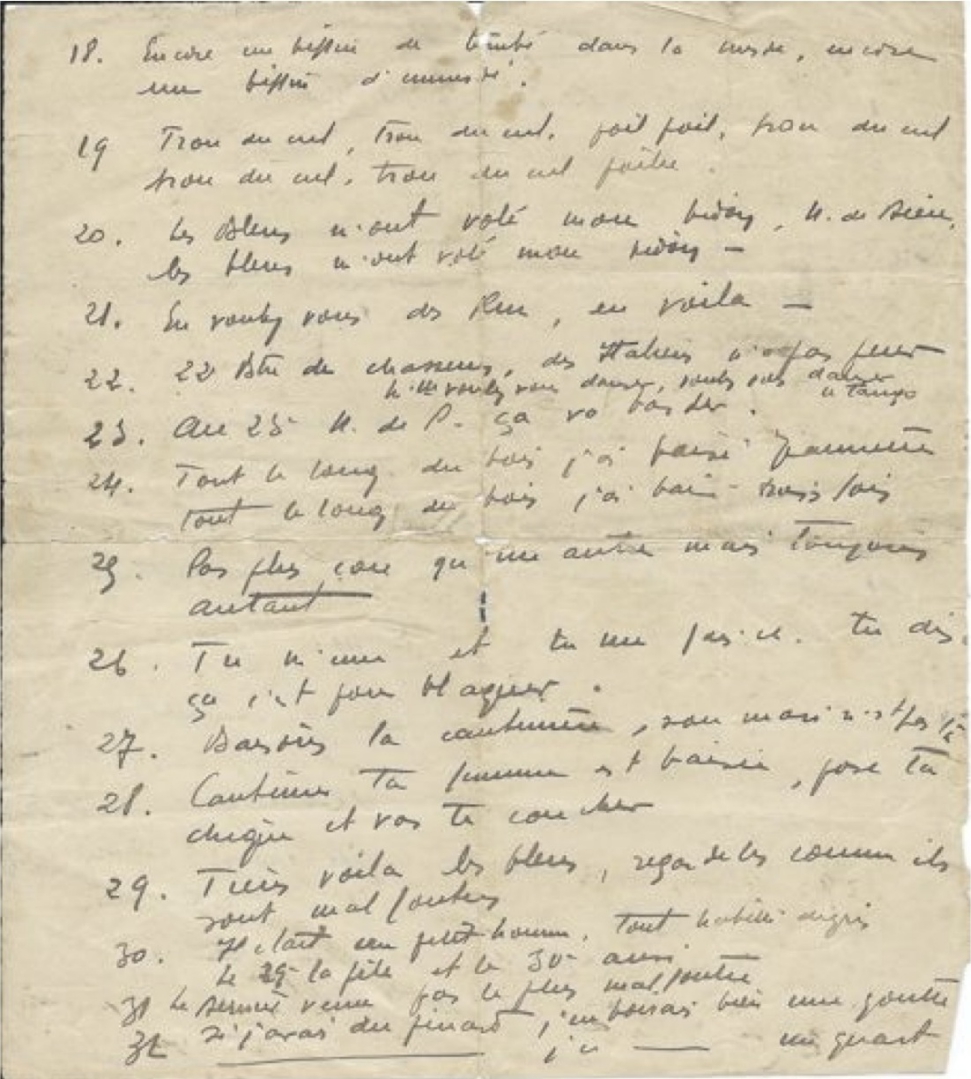 18. Encore un biffin de tombé dans la merde, encore
un biffin d'emmerdé.
19 Trou du cul, Trou du cul, poil poil, trou du cul
trou du cul, trou du cul
20. Les Bleus m'ont volé mon bidon, N. de Dieu,
les bleus m'ont volé mon bidon —
21. En voulez vous des Kru, en voila —
22. 22e Btn de chasseurs, des Italiens n'a pas peur
voulez vous danser, voulez vous danser
le tango
23. Au 23e N. de D. ça va barder.
24. Tout le long du bois j'ai baisé Jeannette
tout le long du bois j'ai baisé trois fois
25. Pas plus con qu'un autre mais Toujours
autant
26. Tu m'emm et tu me fais ch. tu dis
ça c'est pour blaguer.
27. Baisons la cantinière, son mari n'est pas là
28. Cantinier Ta femme est baisée, pose ta
chique et vas te coucher
29. Tiens voila les bleus, regarde les comme ils
sont mal foutus
30. Il était un petit homme, Tout habillé de gris
le 29e la pête et le 30e aussi
31 Le dernier venu pas le plus mal foutu
32 Si j'avais du pinard j'en boirais bien une goutte
j'en —— un quart